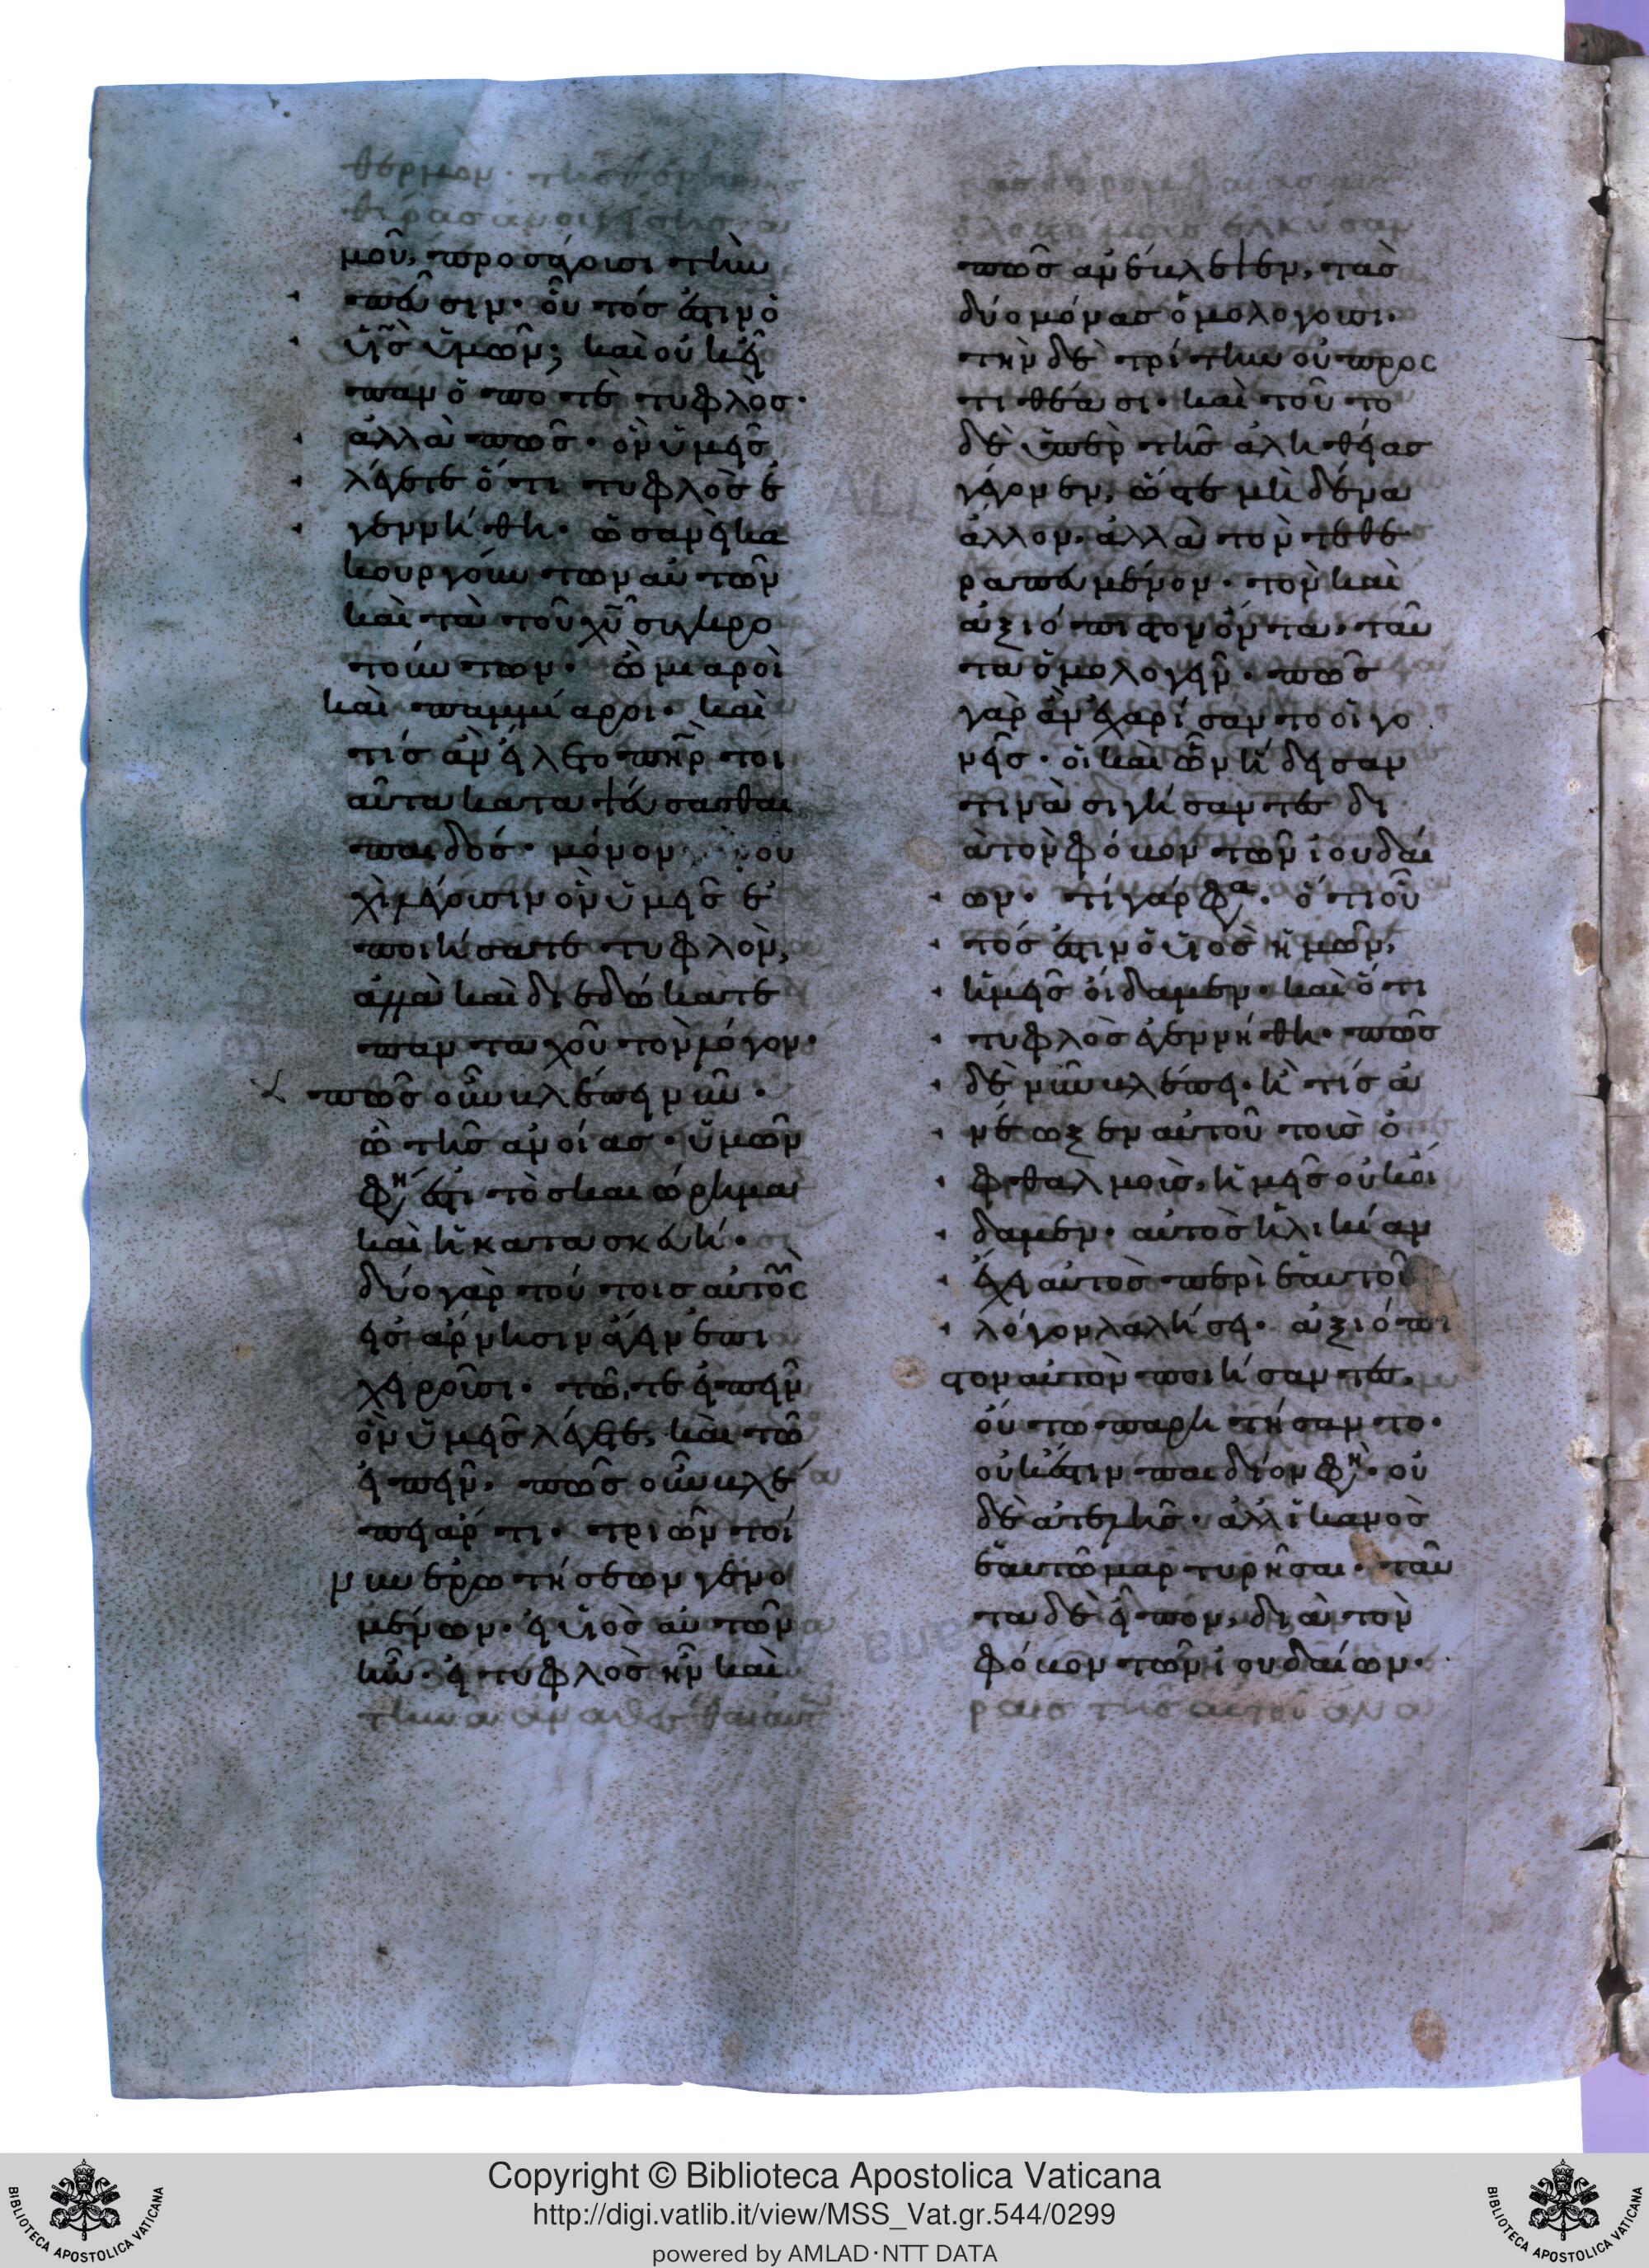 μοῦ, προσάγουσι τὴν
παῦσιν· οὗτός ἐστιν ὁ
υἱὸς ὑμῶν; καὶ οὐκ εἶ
πον ὅ ποτε τυφλὸς·
ἀλλὰ πῶς· ὃν ὑμεῖς
λέγετε ὅτι τυφλὸς ἐ
γεννήθη· ὡσανεὶ κα
κουργούντων αὐτῶν
καὶ τὰ τοῦ χυ συγκρο
τούντων· ὦ μιαροὶ
καὶ παμμίαροι· καὶ
τίς ἂν ἕλετο πηρ τοι
αῦτα καταψεύσασθαι
παιδός· μόνον οὐ
χὶ λέγουσιν ὃν ὑμεῖς ἐ
ποιήσατε τυφλὸν,
ἀλλὰ καὶ διεδώκατε
πανταχοῦ τὸν λόγον·
πῶς οὖν βλέπει νῦν·
ὢ τῆς ἀνοίας· ὑμῶν
φη ἐστι τὸ σκαιώρημα
καὶ ἡ κατασκευή·
δύο γὰρ τούτοις αὐτοὺς
εἰς ἄρνησιν ἄγειν ἐπι
χειροῦσι· τῶ, τε εἰπεῖν
ὃν ὑμεῖς λέγετε, καὶ τῶ
εἰπεῖν· πῶς οὖν βλέ
πει ἄρτι· τριῶν τοί
νυν ἐρωτήσεων γενο
μένων· εἰ υἱὸς αὐτῶν
ἦν· εἰ τυφλὸς ἦν καὶ
πῶς ἀνέβλεψεν, τὰς
δύο μόνας ὁμολογοῦσι·
τὴν δὲ τρίτην οὐ προς
τιθέασι· καὶ τοῦτο
δὲ ὑπὲρ τῆς ἀληθείας
γέγονεν, ὥστε μηδένα
ἄλλον, ἀλλὰ τὸν τεθε
ραπευμένον· τὸν καὶ
ἀξιόπιστον ὄντα, ταῦ
τα ὁμολογεῖν· πῶς
γὰρ ἂν ἐχαρίσαντο οἱ γο
νεῖς· οἳ καὶ ὧν ἤδεσαν
τινὰ σιγήσαντες δι
ὰ τὸν φόβον τῶν ἰουδαί
ων· τί γάρ φα· ὅτι οὗ
τός ἐστιν ὁ υἱὸς ἡμῶν,
ἡμεῖς οἴδαμεν· καὶ ὅτι
τυφλὸς ἐγεννήθη· πῶς
δὲ νῦν βλέπει· ἢ τίς ἀ
νέωξεν αὐτοῦ τοὺς ὀ
φθαλμοὺς, ἡμεῖς οὐκ οἴ
δαμεν· αὐτὸς ἡλικίαν
ἔχει αὐτὸς περὶ ἑαυτοῦ
λόγον λαλήσει· ἀξιόπι
στον αὐτὸν ποιήσαντες,
οὕτω παρῃτήσαντο·
οὐκ ἔστιν παιδίον φη· οὐ
δὲ ἀτελὴς· ἀλλ' ἱκανὸς
ἑαυτῶ μαρτυρῆσαι· ταῦ
τα δὲ εἶπον, διὰ τὸν
φόβον τῶν ἰουδαίων·
Copyright © Biblioteca Apostolica Vaticana
http://digi.vatlib.it/view/MSS_Vat.gr.544/0299
powered by AMLAD·NTT DATA
BIBLIOTECA APOSTOLICA VATICANA
BIBLIOTECA APOSTOLICA VATICANA